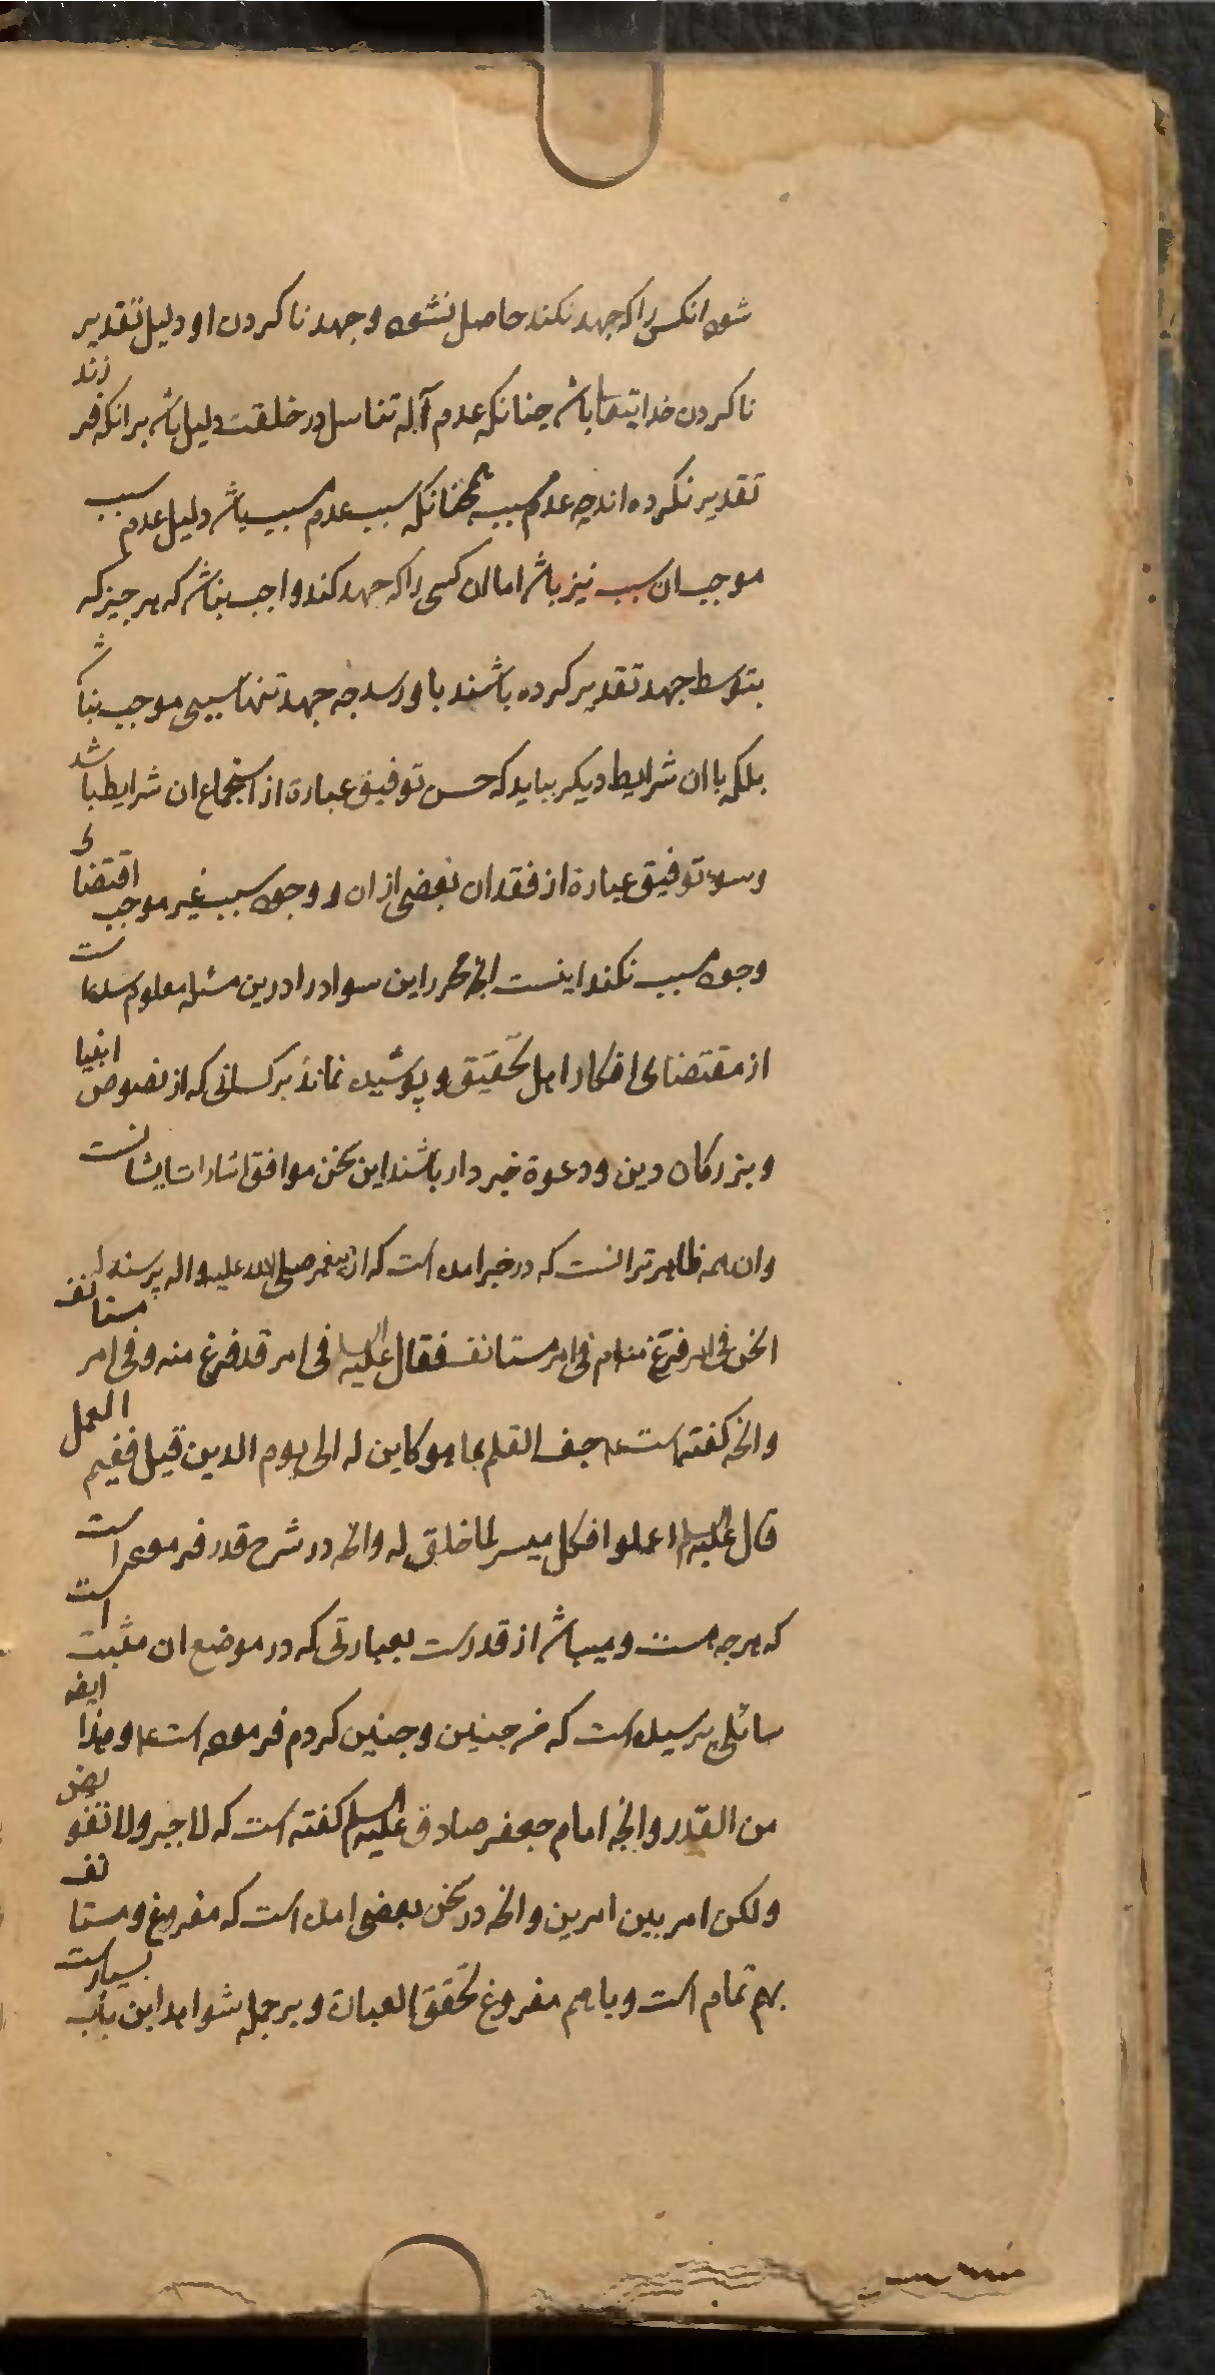 شود انکس را که جهد نکند حاصل نشود و جهد ناکردن او دلیل تقدیر
ناکردن خدایتعا باشد چنانکه عدم آله تناسل در خلقت دلیل باشد بر انکه فرزند
تقدیر نکرده اند چه عدم سبب همچنانکه سبب عدم مسبب باشد دلیل عدم سبب
موجب ان سبب نیز باشد اما ان کسی را که جهد کند واجب نباشد که هر چیز که
بتوسط جهد تقدیر کرده باشند باو رسد چه جهد تنها سببی موجب نباشد
بلکه با ان شرایط دیکر بباید که حسن توفیق عبارة از استجماع ان شرایط باشد
وسوء توفیق عبارة از فقدان بعضی از ان و وجود سبب غیر موجب اقتضای
وجود مسبب نکند اینست انچه محرر این سواد را درین مسئله معلوم شده است
از مقتضای افکار اهل تحقیق و پوشیده نماند بر کسانی که از نصوص انبیا
و بزرکان دین و دعوة خبردار باشند این سخن موافق اشارات ایشانست
وان همه ظاهرتر انست که در خبر امده است که از پیغمبر صلی الله علیه واله پرسیدند
انحن فی امر فرغ منه ام فی امر مستانف فقال علیه السلام فی امر قد فرغ منه وفی امر مستانف
وانچه کفته است ع جف القلم بما هو کاین له الی یوم الدین قیل ففیم العمل
قال علیه السلم اعملوا فکل میسر لما خلق له وانچه در شرح قدر فرموده است
که هرچه هست و میباشد از قدرست بعبارتی که در موضع ان مثبت است
سائلی پرسیده است که من چنین و چنین کردم فرموده است ع وهذا ایضا
من القدر وانچه امام جعفر صادق علیه السلم کفته است که لا جبر ولا تفویض
ولکن امر بین امرین وانچه در سخن بعضی امده است که مفروغ و مستانف
بهم تمام است و با هم مفروغ تحقق العباد و بر جمله شواهد این باب بسیارست